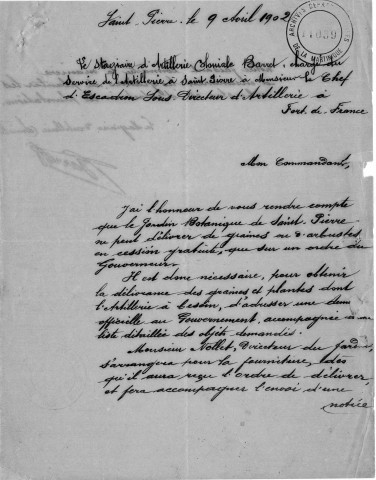 Saint-Pierre, le 9 Avril 1902
ARCHIVES
DE LA MARTINIQUE
Le Stagiaire d'Artillerie Coloniale chargé du
Service de l'Artillerie à Saint-Pierre à Monsieur le Chef
d'Escadron Sous-Directeur d'Artillerie à
Fort-de-France
Mon Commandant,
J'ai l'honneur de vous rendre compte
que le Jardin Botanique de Saint-Pierre
ne peut délivrer de graines ou d'arbustes
en cession gratuite, que sur un ordre du
Gouverneur.
Il est donc nécessaire, pour obtenir
la délivrance des graines et plantes dont
l'Artillerie à besoin, d'adresser une dem
officielle au Gouvernement, accompagnée d'une
liste détaillée des objets demandés.
Monsieur Nollet, Directeur du Jardin,
s'arrangera pour la fourniture, dès
qu'il aura reçu l'ordre de délivrer,
et fera accompagner l'envoi d'une
notice